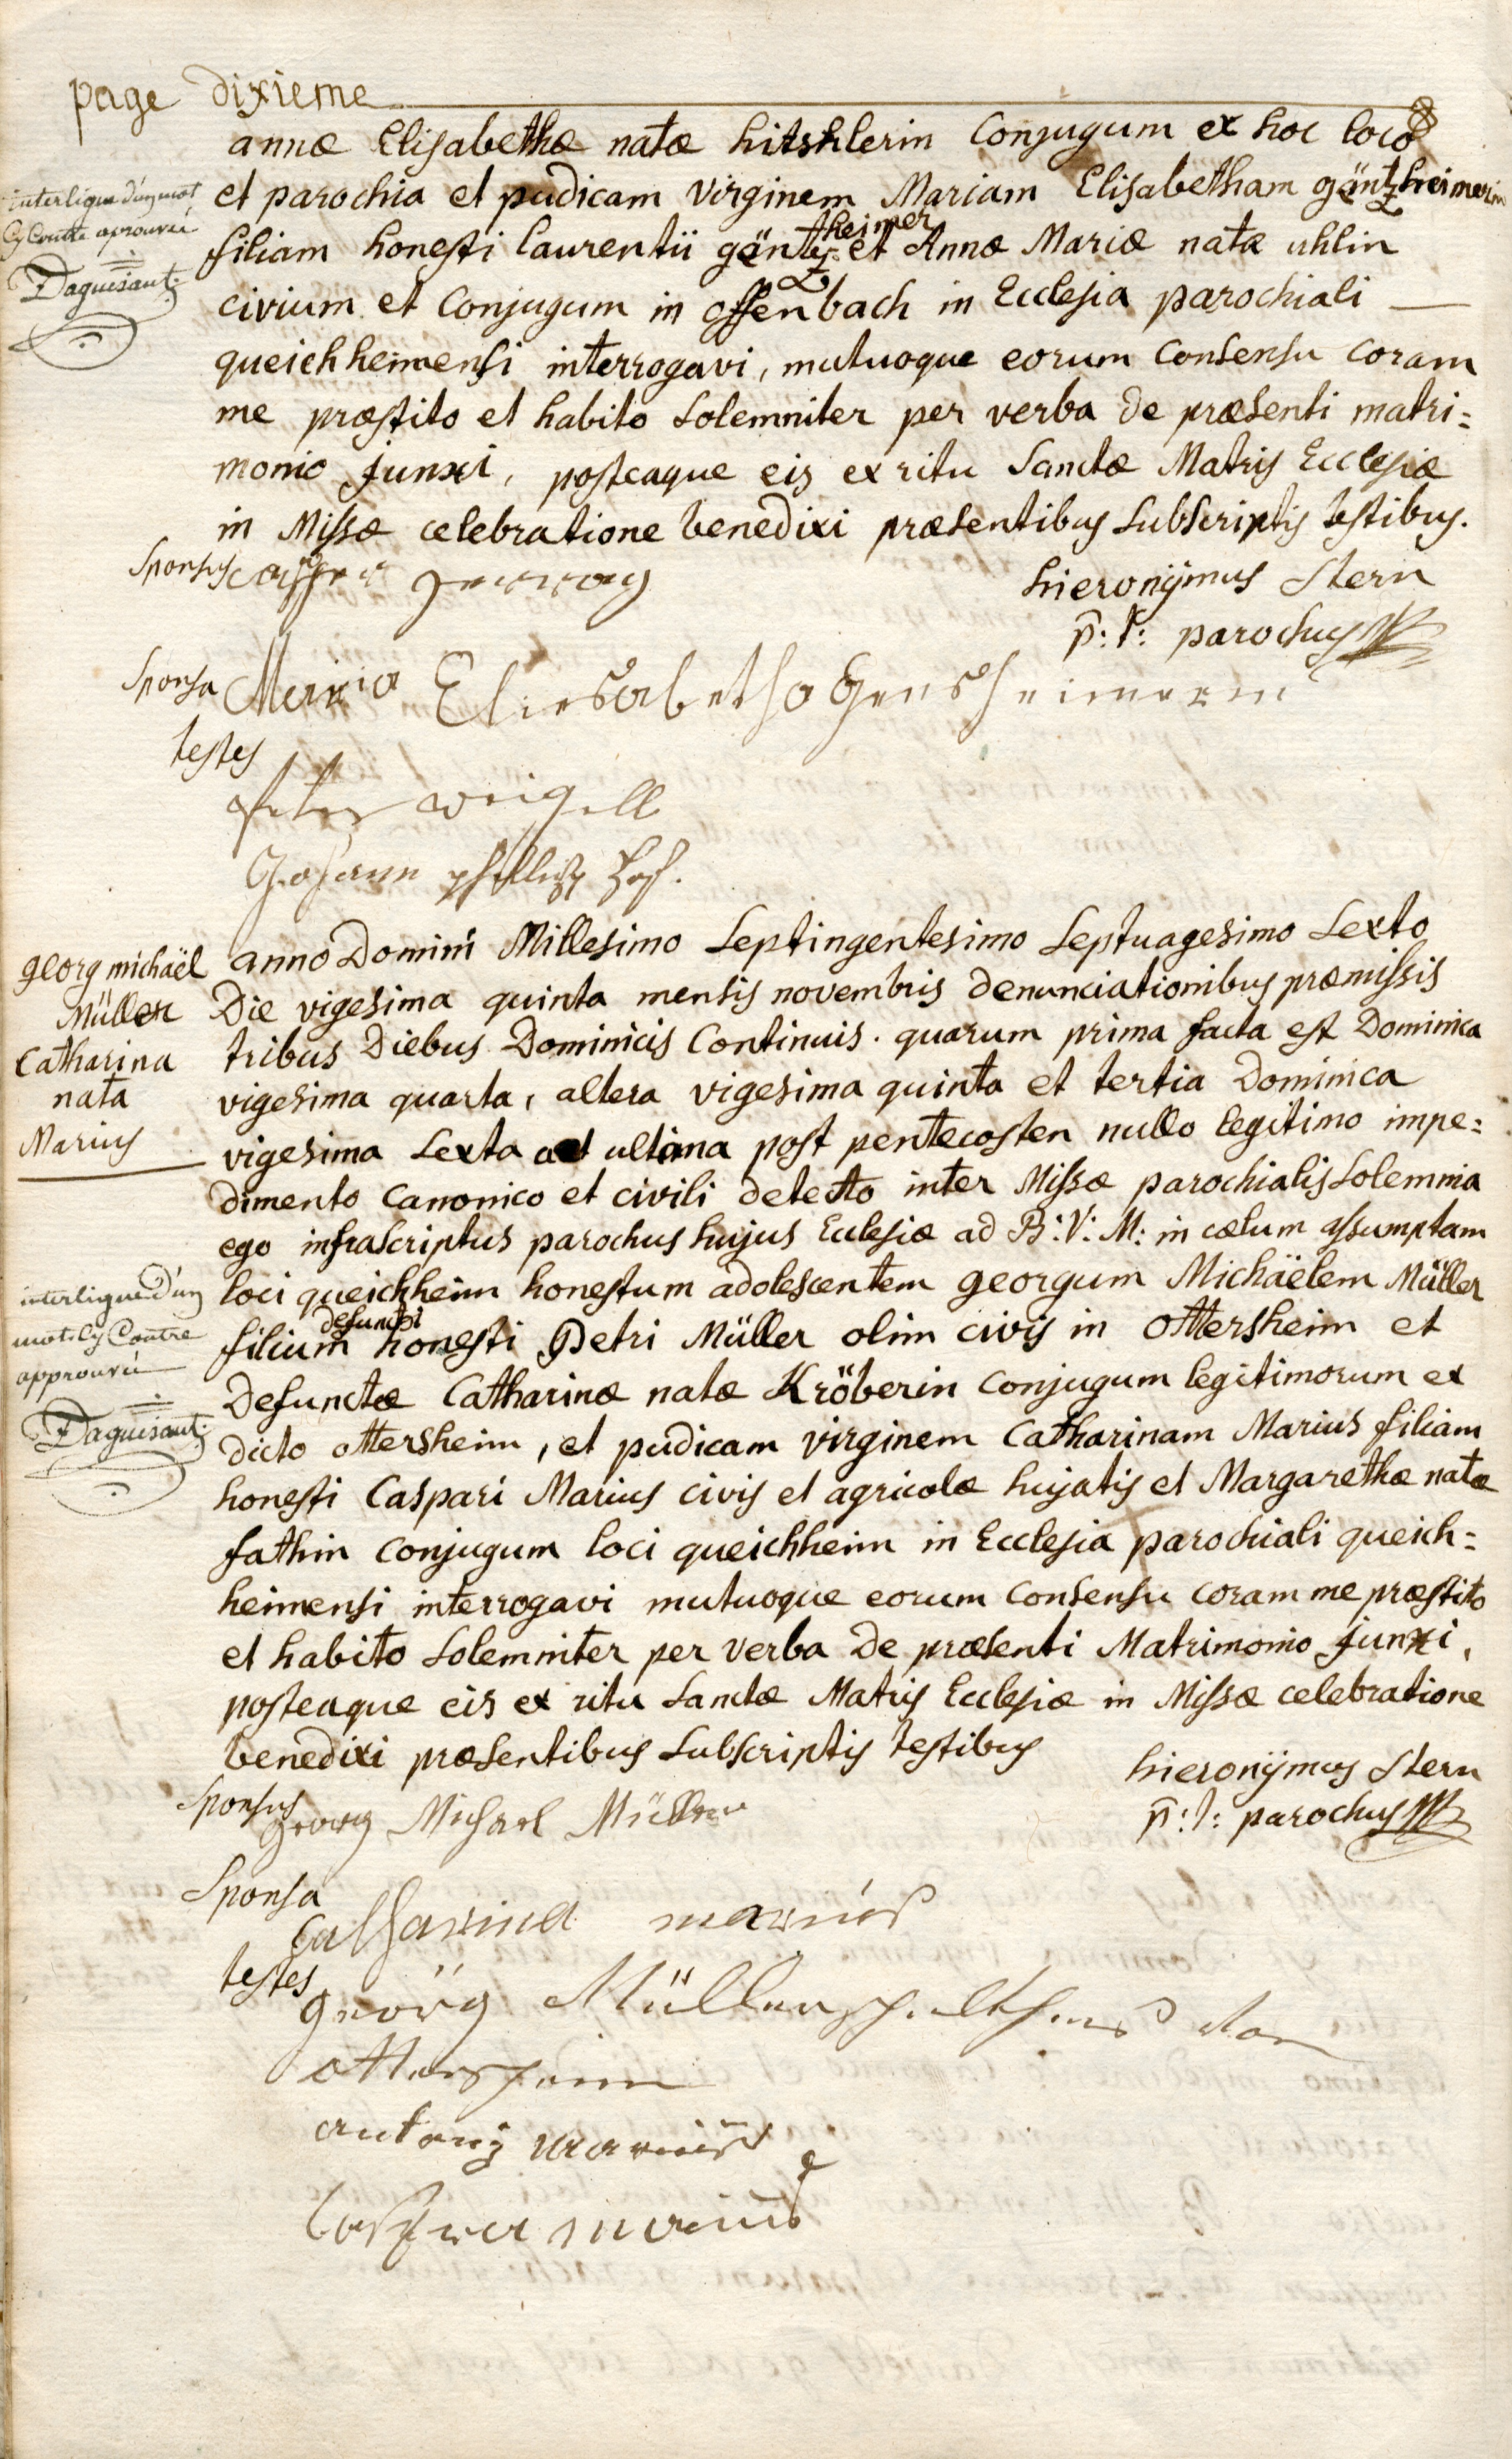 page dixieme
annæ Elisabethæ natæ hitshlerin Conjugum ex hoc loco
et parochia et pudicam virginem Mariam Elisabetham gäntzheimerin
interligne d'un mot
Cy Contre aprouvée
Daguisant
theimer
filiam honesti laurentii gäntz et Annæ Mariæ natæ uhlin
civium et Conjugum in offenbach in Ecclesia parochiali
queichheimensi interrogavi, mutuoque eorum Consensu coram
me præstito et habito solemniter per verba de præsenti matri=
monio junxi, posteaque eis ex ritu Sanctæ Matris Ecclesiæ
in Missæ celebratione benedixi præsentibus subscriptis testibus.
Sponsus
hieronÿmus Stern
p: t: parochus
Sponsa Maria Eliesabetha Gensheimerin
testes
peter weigell
Johann phillip
georg michaël
Müller
Catharina
nata
Marius
anno Domini Millesimo Septingentesimo Septuagesimo Sexto
Die vigesima quinta mensis novembris denunciationibus præmissis
tribus Diebus Dominicis Continuis. quarum prima facta est Dominica
vigesima quarta, altera vigesima quinta et tertia Dominica
vigesima Sexta et ultima post pentecosten nullo legitimo impe=
dimento Canonico et civili detecto inter Missæ parochialis Solemnia
ego infrascriptus parochus hujus Ecclesiæ ad B: V: M: in cælum assumptam
loci queichheim honestum adolescentem georgum Michäelem Müller
interligne d'un
mot Cy Contre
approuvée
Daguisant
defuncti
filium honesti Petri Müller olim civis in Ottersheim et
Defunctæ Catharinæ natæ Kröberin Conjugum legitimorum ex
dicto ottersheim, et pudicam virginem Catharinam Marius filiam
honesti Caspari Marius civis et agricolæ hujatis et Margarethæ natæ
fathin Conjugum loci queichheim in Ecclesia parochiali queich=
heimensi interrogavi mutuoque eorum Consensu coram me præstito
et habito Solemniter per verba De præsenti Matrimonio junxi,
posteaque eis ex ritu Sanctæ Matris Ecclesiæ in Missæ celebratione
benedixi præsentibus Subscriptis testibus
hieronÿmus Stern
p: t: parochus
Sponsus georg Michael Müller
Sponsa
Catharina marius
testes
georg Müller schultheis von
ottersheim
antonÿ marius
Casper marius